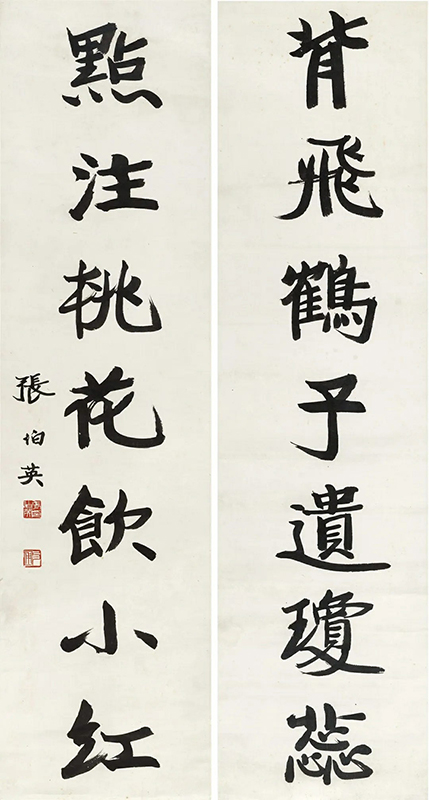 背飛鶴子遺瓊蕊
點注桃花飲小紅
張伯英